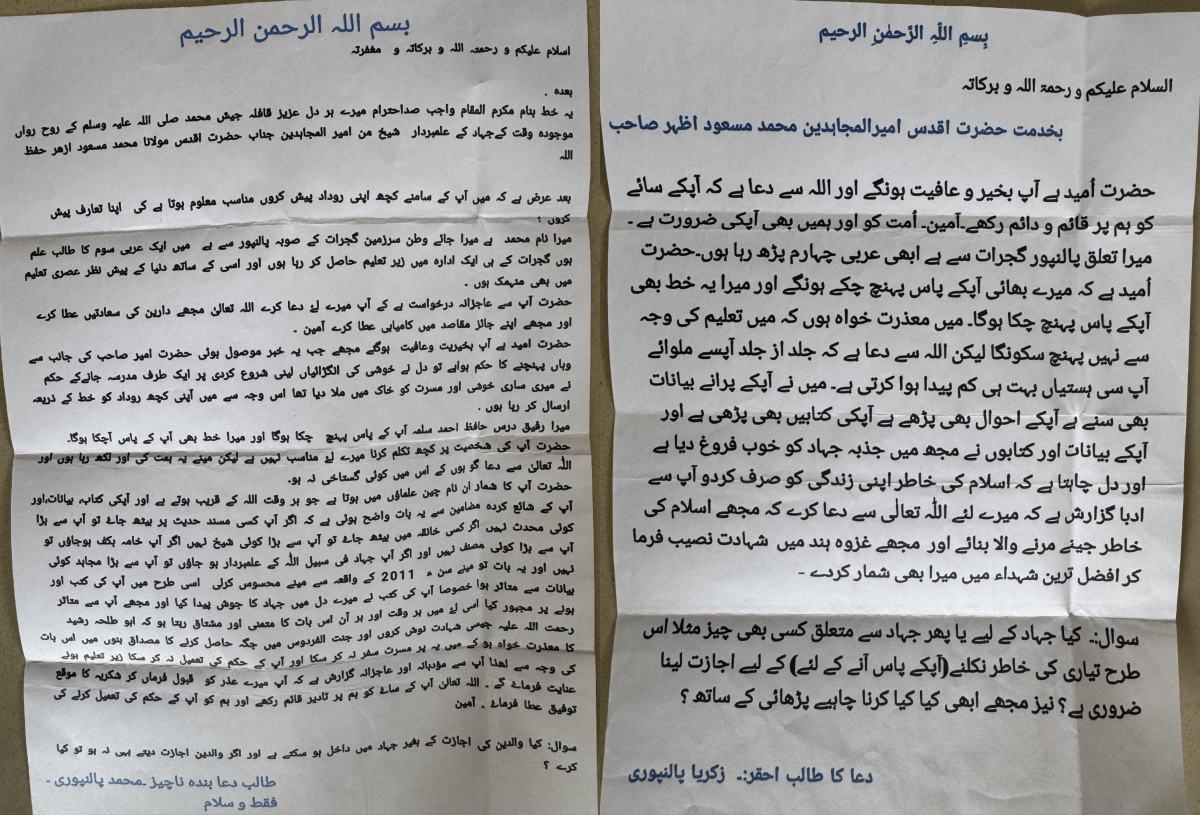 بسم اللہ الرحمن الرحیم
اسلام علیکم و رحمتہ اللہ و برکاتہ و مغفرتہ
بعدہ .
یہ خط بنام مکرم المقام واجب صداحترام میرے ہر دل عزیز قافلہ جیش محمد صلی اللہ علیہ وسلم کے روح رواں
موجودہ وقت کےجہاد کے علمبردار شیخ من امیر المجاہدین جناب حضرت اقدس مولانا محمد مسعود ازھر حفظ
اللہ
بعد عرض ہے کہ میں آپ کے سامنے کچھ اپنی روداد پیش کروں مناسب معلوم ہوتا ہے کی اپنا تعارف پیش
کروں :
میرا نام محمد ہے میرا جائے وطن سرزمین گجرات کے صوبہ پالنپور سے ہے میں ایک عربی سوم کا طالب علم
ہوں گجرات کے ہی ایک ادارہ میں زیر تعلیم حاصل کر رہا ہوں اور اسی کے ساتھ دنیا کے پیش نظر عصری تعلیم
میں بھی منہمک ہوں ۔
حضرت آپ سے عاجزانہ درخواست ہے کے آپ میرے لۓ دعا کرے اللہ تعالیٰ مجھے دارین کی سعادتیں عطا کرے
اور مجھے اپنے جائز مقاصد میں کامیابی عطا کرے آمین ۔
حضرت امید ہے آپ بخیریت وعافیت ہوگے مجھے جب یہ خبر موصول ہوئی حضرت امیر صاحب کی جانب سے
وہاں پہنچنے کا حکم ہواہے تو دل نے خوشی کی انگڑائیاں لینی شروع کردی پر ایک طرف مدرسہ جانےکے حکم
نے میری ساری خوشی اور مسرت کو خاک میں ملا دیا تھا اس وجہ سے میں آپنی کچھ روداد کو خط کے ذریعہ
ارسال کر رہا ہوں .
میرا رفیق درس حافظ احمد سلمہ آپ کے پاس پہنچ چکا ہوگا اور میرا خط بھی آپ کے پاس آچکا ہوگا۔
حضرت آپ کی شخصیت پر کچھ تکلم کرنا میرے لۓ مناسب نہیں ہے لیکن مینے یہ ہمت کی اور لکھ رہا ہوں اور
اللہ تعالیٰ سے دعا گو ہوں کے اس میں کوئی گستاخی نہ ہو۔
حضرت آپ کا شمار ان نام چین علماؤں میں ہوتا ہے جو ہر وقت اللہ کے قریب ہوتے ہے اور آپکی کتاب، بیانات،اور
آپ کے شائع کردہ مضامین سے یہ بات واضح ہوئی ہے کہ اگر آپ کسی مسند حدیث پر بیٹھ جاۓ تو آپ سے بڑا
کوئی محدث نہیں اگر کسی خانقہ میں بیٹھ جاۓ تو آپ سے بڑا کوئی شیخ نہیں اگر آپ خامہ بکف ہوجاؤں تو
آپ سے بڑا کوئی مصنف نہیں اور اگر آپ جہاد فی سبیل اللہ کے علمبردار ہو جاؤں تو آپ سے بڑا مجاہد کوئی
نہیں اور یہ بات تو مینے سن ء 2011 کے واقعہ سے مینے محسوس کرلی اسی طرح میں آپ کی کتب اور
بیانات سے متاثر ہوا خصوصا آپ کی کتب نے میرے دل میں جہاد کا جوش پیدا کیا اور مجھے آپ سے متاثر
ہونے پر مجبور کیا اسی لۓ میں ہر وقت اور ہر آن اس بات کا متمنی اور مشتاق رہتا ہو کہ ابو طلحہ رشید
رحمت اللہ علیہ جیسی شہادت نوش کروں اور جنت الفردوس میں جگہ حاصل کرنے کا مصداق بنوں میں اس بات
کا معذرت خواہ ہو کے میں یہ پر مسرت سفر نہ کر سکا اور آپ کے حکم کی تعمیل نہ کر سکا زیر تعلیم ہونے
کی وجہ سے لھذا آپ سے مؤدبانہ اور عاجزانہ گزارش ہے کہ آپ میرے عذر کو قبول فرماں کر شکریہ کا موقع
عنایت فرماۓ گے ۔ اللہ تعالیٰ آپ کے ساۓ کو ہم پر تادیر قائم رکھے اور ہم کو آپ کے حکم کی تعمیل کرنے کی
توفیق عطا فرماۓ ۔ آمین
سوال: کیا والدین کی اجازت کے بغیر جہاد میں داخل ہو سکتے ہے اور اگر والدین اجازت دیتے ہی نہ ہو تو کیا
کرے ؟
طالب دعا بندہ ناچیز ۔محمد پالنپوری ۔
فقط و سلام
بِسمِ اللّٰہِ الرَّحمٰنِ الرحیم
السلام علیکم و رحمۃ اللہ و برکاتہ
بخدمت حضرت اقدس امیرالمجاہدین محمد مسعود اظہر صاحب
حضرت اُمید ہے آپ بخیر و عافیت ہونگے اور اللہ سے دعا ہے کہ آپکے سائے
کو ہم پر قائم و دائم رکھے۔آمین۔ اُمت کو اور ہمیں بھی آپکی ضرورت ہے ۔
میرا تعلق پالنپور گجرات سے ہے ابھی عربی چہارم پڑھ رہا ہوں۔حضرت
اُمید ہے کہ میرے بھائی آپکے پاس پہنچ چکے ہونگے اور میرا یہ خط بھی
آپکے پاس پہنچ چکا ہوگا۔ میں معذرت خواہ ہوں کہ میں تعلیم کی وجہ
سے نہیں پہنچ سکونگا لیکن اللہ سے دعا ہے کہ جلد از جلد آپسے ملوائے
آپ سی ہستیاں بہت ہی کم پیدا ہوا کرتی ہے۔ میں نے آپکے پرانے بیانات
بھی سنے ہے آپکے احوال بھی پڑھے ہے آپکی کتابیں بھی پڑھی ہے اور
آپکے بیانات اور کتابوں نے مجھ میں جذبہ جہاد کو خوب فروغ دیا ہے
اور دل چاہتا ہے کہ اسلام کی خاطر اپنی زندگی کو صرف کردو آپ سے
ادبا گزارش ہے کہ میرے لئے اللّٰہ تعالٰی سے دعا کرے کہ مجھے اسلام کی
خاطر جینے مرنے والا بنائے اور مجھے غزوہ ہند میں شہادت نصیب فرما
کر افضل ترین شہداء میں میرا بھی شمار کردے ۔
سوال:۔ کیا جہاد کے لیے یا پھر جہاد سے متعلق کسی بھی چیز مثلا اس
طرح تیاری کی خاطر نکلنے(آپکے پاس آنے کے لئے) کے لیے اجازت لینا
ضروری ہے؟ نیز مجھے ابھی کیا کیا کرنا چاہیے پڑھائی کے ساتھ ؟
دعا کا طالب احقر:۔ زکریا پالنپوری